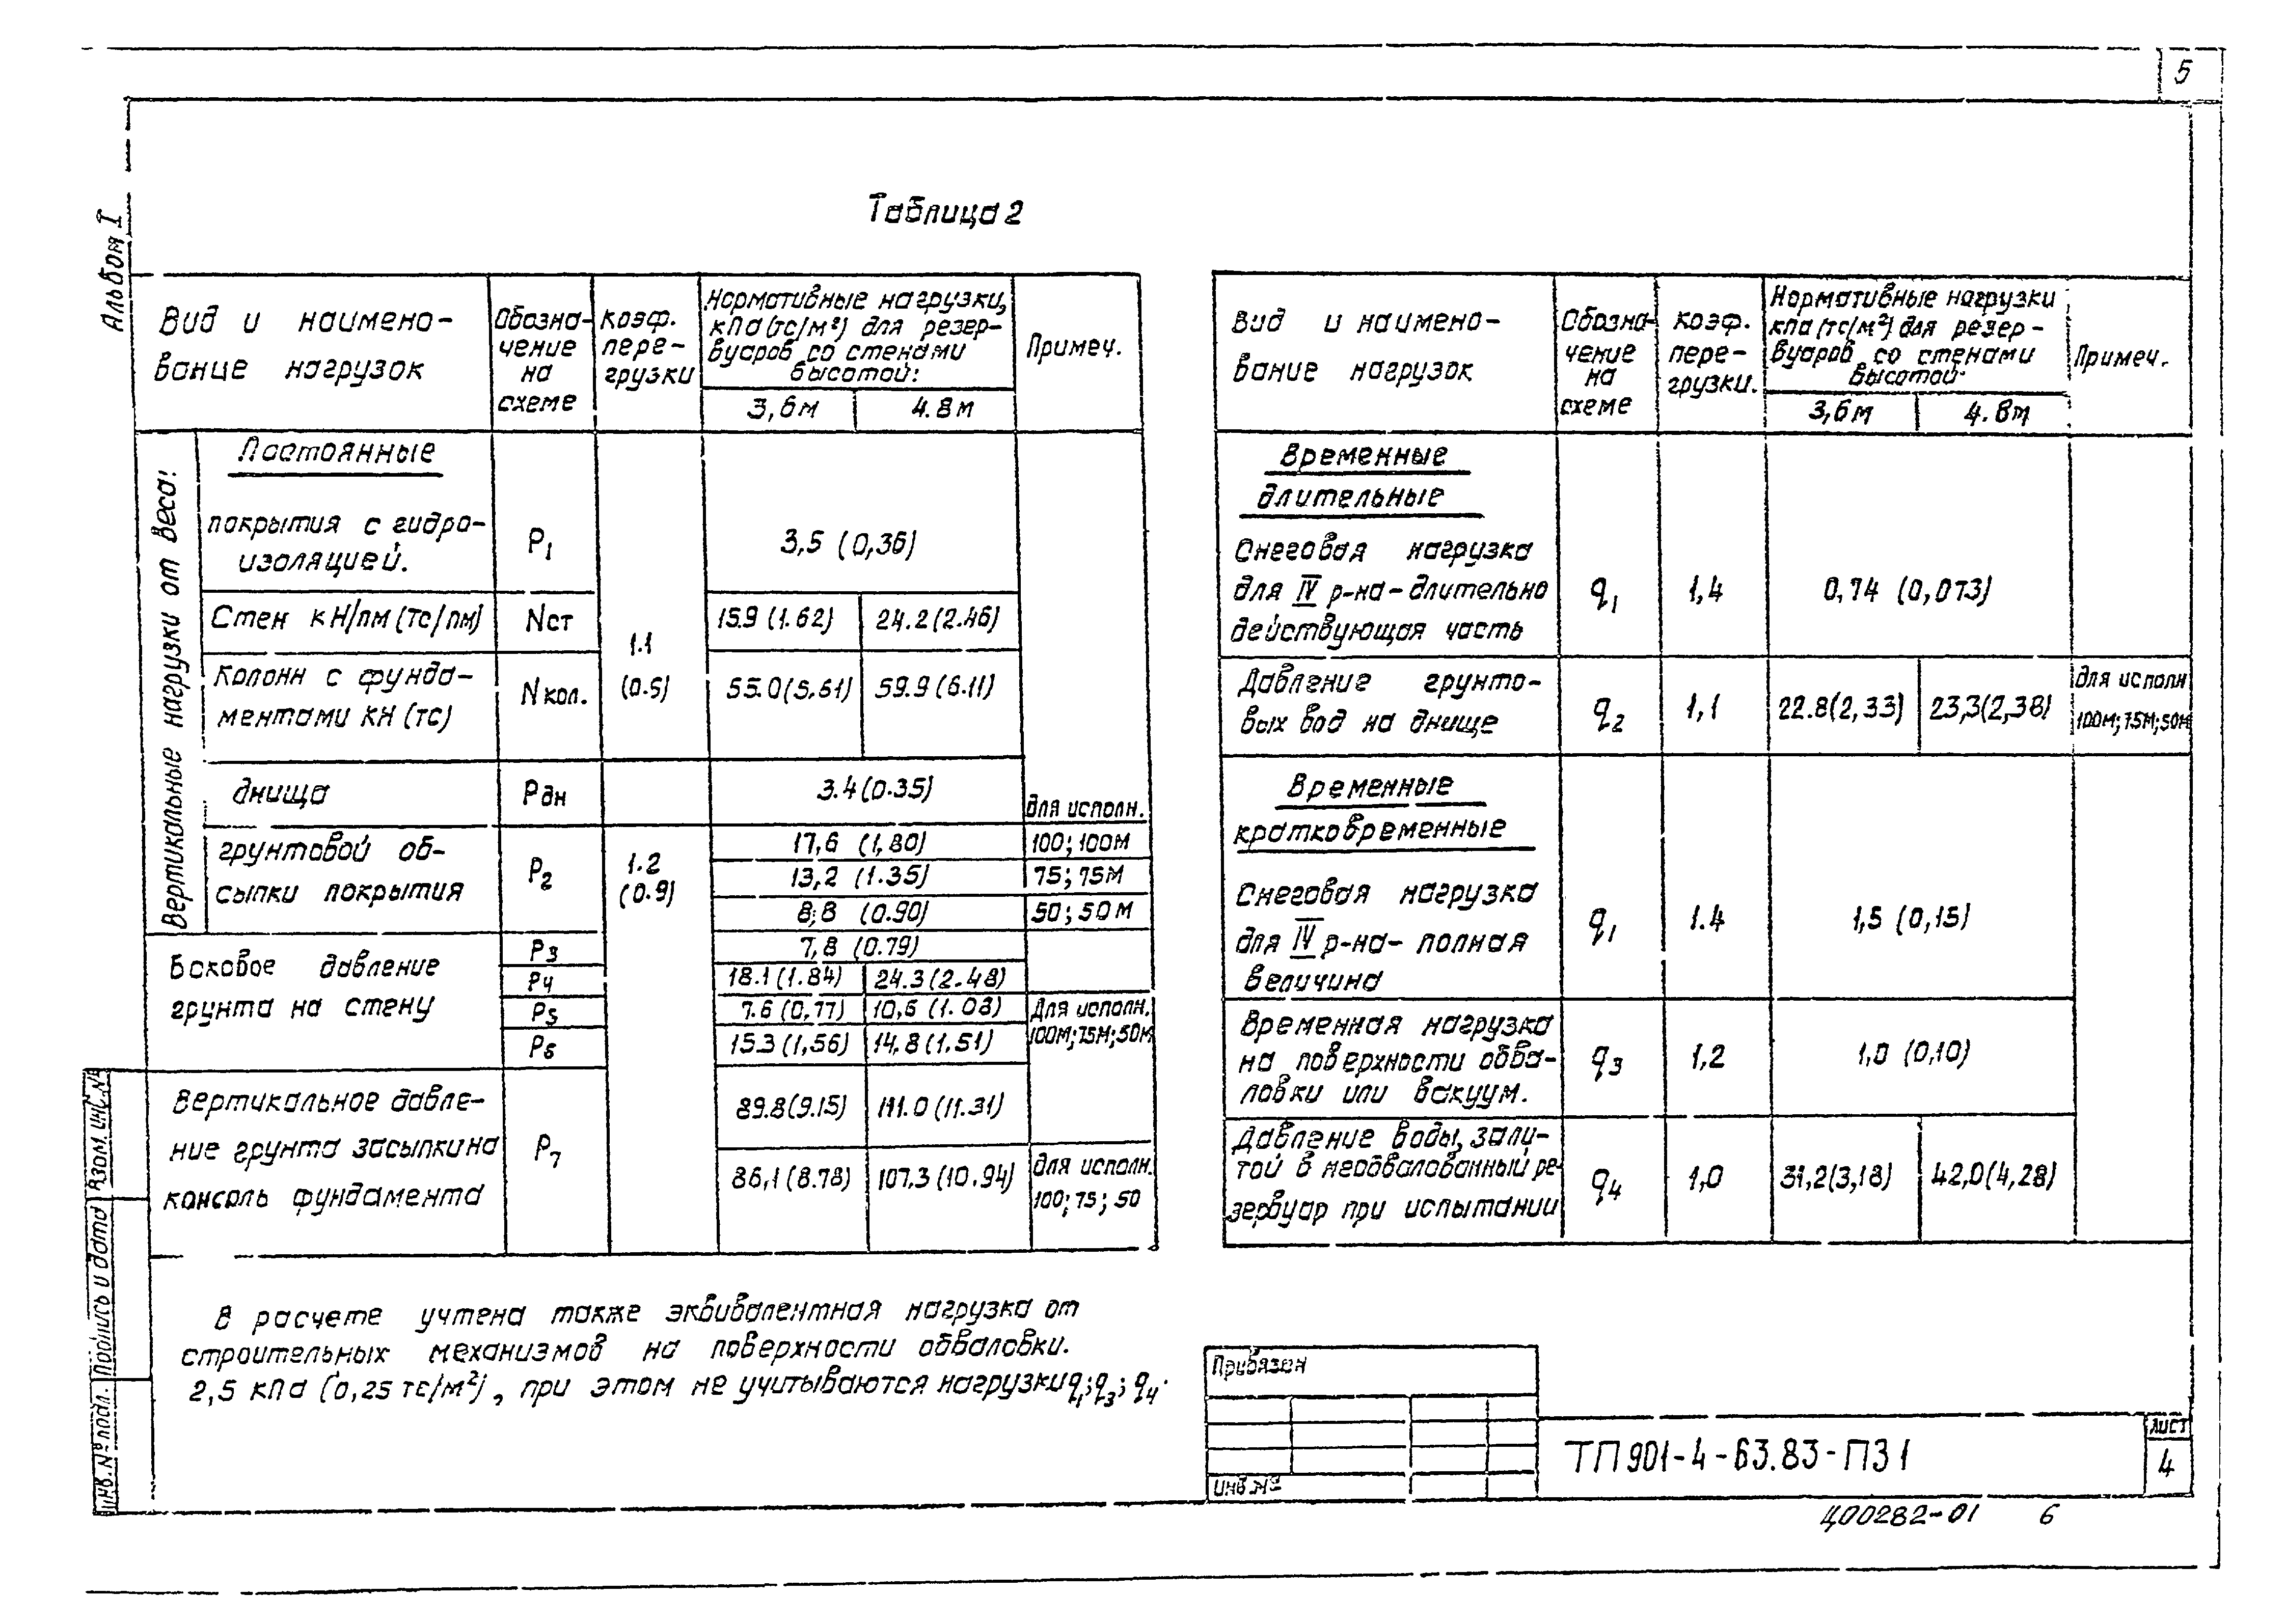 5
Альбом I
Таблица 2
Вид и наимено-
вание нагрузок
Обозна-
чение
на
схеме
коэф.
пере-
грузки
Нормативные нагрузки,
кПа (тс/м²) для резер-
вуаров со стенами
высотой:
3,6м 4.8м
Примеч.
Вертикальные нагрузки от веса:
Постоянные
покрытия с гидро-
изоляцией.
P1
1.1
(0.9)
3,5 (0,36)
Стен кН/пм (тс/пм)
Nст
15.9 (1.62) 24.2 (2.46)
Колонн с фунда-
ментами кН (тс)
Nкол.
55.0 (5,61) 59.9 (6.11)
днища
Pдн
3.4 (0.35)
грунтовой об-
сыпки покрытия
P2
1.2
(0.9)
для исполн.
17,6 (1,80) 100; 100М
13,2 (1.35) 75; 75М
8,8 (0.90) 50; 50М
Боковое давление
грунта на стену
P3 7,8 (0.79)
P4 18.1 (1.84) 24.3 (2.48)
P5 7.6 (0,77) 10,6 (1.08)
P6 15.3 (1,56) 14,8 (1.51)
Для исполн.
100М; 75М; 50М
Вертикальное давле-
ние грунта засыпки на
консоль фундамента
P7
89.8 (9.15) 111.0 (11.31)
86,1 (8.78) 107,3 (10.94)
для исполн.
100; 75; 50
Вид и наимено-
вание нагрузок
Обозна-
чение
на
схеме
коэф.
пере-
грузки.
Нормативные нагрузки
кПа (тс/м²) для резер-
вуаров со стенами
высотой:
3,6м 4.8м
Примеч.
Временные
длительные
Снеговая нагрузка
для IV р-на - длительно
действующая часть
q1 1,4 0,74 (0,073)
Давление грунто-
вых вод на днище
q2 1,1 22.8 (2,33) 23,3 (2,38)
для исполн
100М; 75М; 50М
Временные
кратковременные
Снеговая нагрузка
для IV р-на - полная
величина
q1 1.4 1,5 (0,15)
Временная нагрузка
на поверхности обва-
ловки или вакуум.
q3 1,2 1,0 (0,10)
Давление воды, зали-
той в необвалованный ре-
зервуар при испытании
q4 1,0 31,2 (3,18) 42,0 (4,28)
В расчете учтена также эквивалентная нагрузка от
строительных механизмов на поверхности обваловки.
2,5 кПа (0,25 тс/м²), при этом не учитываются нагрузки q1; q3; q4.
Привязан
Инв №
ТП 901-4-63.83-ПЗ 1
Лист
4
Инв. № подл.
Подпись и дата
Взам. инс. №
Ц00282-01 6